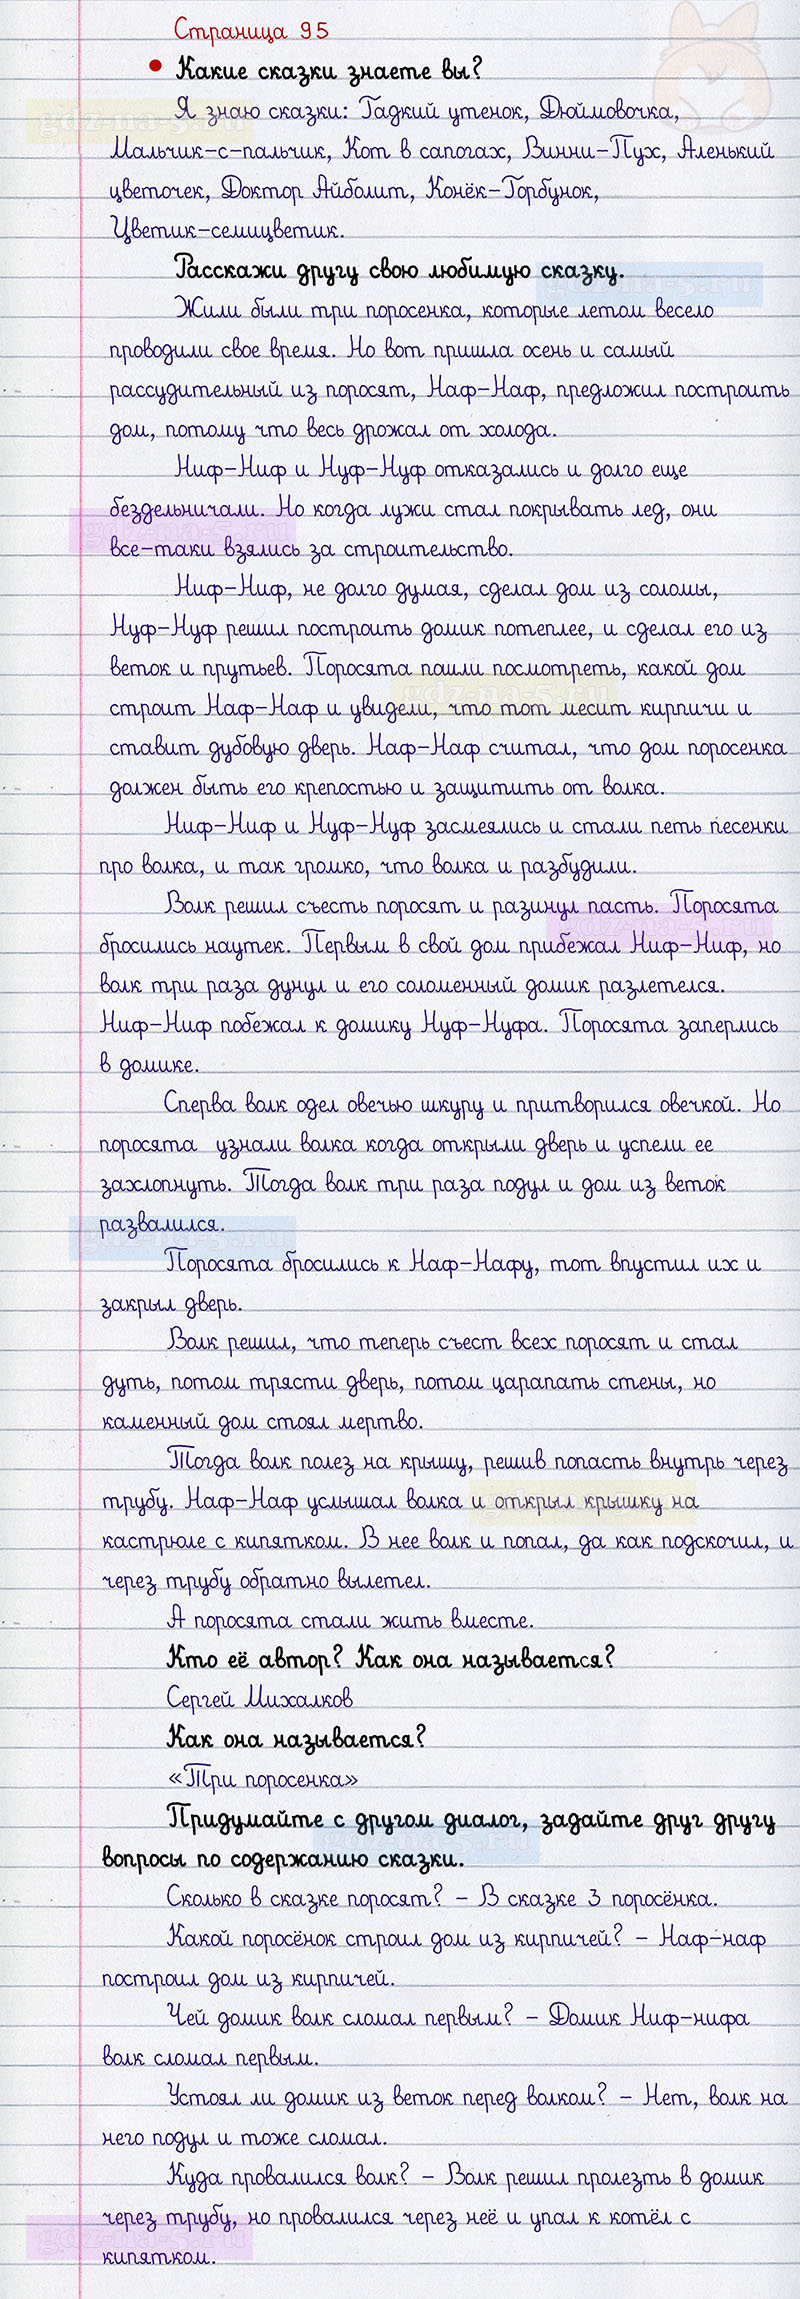 Страница 95
• Какие сказки знаете вы?
Я знаю сказки: Гадкий утенок, Дюймовочка,
Мальчик-с-пальчик, Кот в сапогах, Винни-Пух, Аленький
цветочек, Доктор Айболит, Конёк-Горбунок,
Цветик-семицветик.
Расскажи другу свою любимую сказку.
Жили были три поросенка, которые летом весело
проводили свое время. Но вот пришла осень и самый
рассудительный из поросят, Наф-Наф, предложил построить
дом, потому что весь дрожал от холода.
Ниф-Ниф и Нуф-Нуф отказались и долго еще
бездельничали. Но когда лужи стал покрывать лед, они
все-таки взялись за строительство.
Ниф-Ниф, не долго думая, сделал дом из соломы,
Нуф-Нуф решил построить домик потеплее, и сделал его из
веток и прутьев. Поросята пошли посмотреть, какой дом
строит Наф-Наф и увидели, что тот месит кирпичи и
ставит дубовую дверь. Наф-Наф считал, что дом поросенка
должен быть его крепостью и защитить от волка.
Ниф-Ниф и Нуф-Нуф засмеялись и стали петь песенки
про волка, и так громко, что волка и разбудили.
Волк решил съесть поросят и разинул пасть. Поросята
бросились наутек. Первым в свой дом прибежал Ниф-Ниф, но
волк три раза дунул и его соломенный домик разлетелся.
Ниф-Ниф побежал к домику Нуф-Нуфа. Поросята заперлись
в домике.
Сперва волк одел овечью шкуру и притворился овечкой. Но
поросята узнали волка когда открыли дверь и успели ее
захлопнуть. Тогда волк три раза подул и дом из веток
развалился.
Поросята бросились к Наф-Нафу, тот впустил их и
закрыл дверь.
Волк решил, что теперь съест всех поросят и стал
дуть, потом трясти дверь, потом царапать стены, но
каменный дом стоял мертво.
Тогда волк полез на крышу, решив попасть внутрь через
трубу. Наф-Наф услышал волка и открыл крышку на
кастрюле с кипятком. В нее волк и попал, да как подскочил, и
через трубу обратно вылетел.
А поросята стали жить вместе.
Кто её автор? Как она называется?
Сергей Михалков
Как она называется?
«Три поросенка»
Придумайте с другом диалог, задайте друг другу
вопросы по содержанию сказки.
Сколько в сказке поросят? - В сказке 3 поросёнка.
Какой поросёнок строил дом из кирпичей? - Наф-наф
построил дом из кирпичей.
Чей домик волк сломал первым? - Домик Ниф-нифа
волк сломал первым.
Устоял ли домик из веток перед волком? - Нет, волк на
него подул и тоже сломал.
Куда провалился волк? - Волк решил пролезть в домик
через трубу, но провалился через неё и упал к котёл с
кипятком.
gdz-na-5.ru
gdz-na-5.ru
gdz-na-5.ru
gdz-na-5.ru
gdz-na-5.ru
gdz-na-5.ru
gdz-na-5.ru
gdz-na-5.ru
gdz-na-5.ru